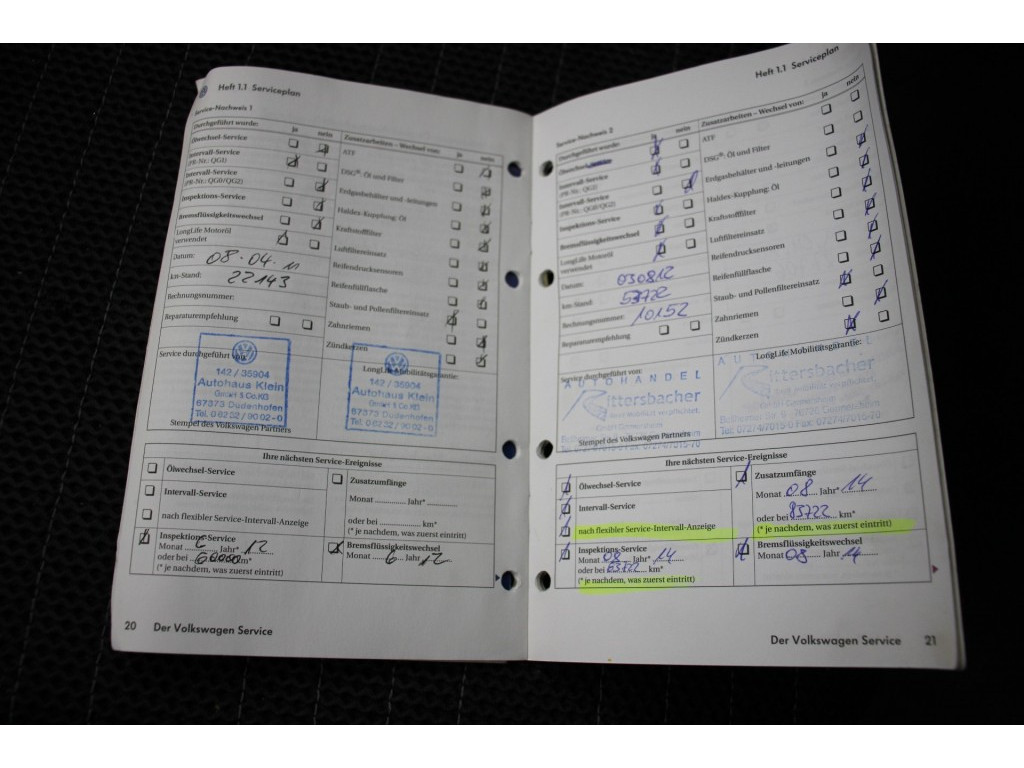 Heft 1.1 Serviceplan
Service-Nachweis 1
Durchgeführt wurde: ja nein
Ölwechsel-Service
Intervall-Service
(PR-Nr.: QG1)
Intervall-Service
(PR-Nr.: QG0/QG2)
Inspektions-Service
Bremsflüssigkeitswechsel
LongLife Motoröl
verwendet
Datum: 08.04.11
km-Stand: 22143
Rechnungsnummer:
Reparaturempfehlung
Zusatzarbeiten – Wechsel von: ja nein
ATF
DSG®: Öl und Filter
Erdgasbehälter und -leitungen
Haldex-Kupplung: Öl
Kraftstofffilter
Luftfiltereinsatz
Reifendrucksensoren
Reifenfüllflasche
Staub- und Pollenfiltereinsatz
Zahnriemen
Zündkerzen
Service durchgeführt von:
142 / 35904
Autohaus Klein
GmbH & Co.KG
67373 Dudenhofen
Tel. 0 62 32 / 90 02 - 0
LongLife Mobilitätsgarantie:
142 / 35904
Autohaus Klein
GmbH & Co.KG
67373 Dudenhofen
Tel. 0 62 32 / 90 02 - 0
Stempel des Volkswagen Partners
Ihre nächsten Service-Ereignisse
Ölwechsel-Service
Intervall-Service
nach flexibler Service-Intervall-Anzeige
Inspektions-Service
Monat 6 Jahr* 12
oder bei 60000 km*
(* je nachdem, was zuerst eintritt)
Zusatzumfänge
Monat ............. Jahr* .............
oder bei .................. km*
(* je nachdem, was zuerst eintritt)
Bremsflüssigkeitswechsel
Monat 6 Jahr 12
20 Der Volkswagen Service
Heft 1.1 Serviceplan
Service-Nachweis 2
Durchgeführt wurde: ja nein
Ölwechsel-Service
Intervall-Service
(PR-Nr.: QG1)
Intervall-Service
(PR-Nr.: QG0/QG2)
Inspektions-Service
Bremsflüssigkeitswechsel
LongLife Motoröl
verwendet
Datum: 030812
km-Stand: 53722
Rechnungsnummer: 10152
Reparaturempfehlung
Zusatzarbeiten – Wechsel von: ja nein
ATF
DSG®: Öl und Filter
Erdgasbehälter und -leitungen
Haldex-Kupplung: Öl
Kraftstofffilter
Luftfiltereinsatz
Reifendrucksensoren
Reifenfüllflasche
Staub- und Pollenfiltereinsatz
Zahnriemen
Zündkerzen
Service durchgeführt von:
AUTOHANDEL
Rittersbacher
LongLife Mobilitätsgarantie:
Rittersbacher
Stempel des Volkswagen Partners
Ihre nächsten Service-Ereignisse
Ölwechsel-Service
Intervall-Service
nach flexibler Service-Intervall-Anzeige
Inspektions-Service
Monat 08 Jahr* 14
oder bei 83722 km*
(* je nachdem, was zuerst eintritt)
Zusatzumfänge
Monat 08 Jahr* 14
oder bei 83722 km*
(* je nachdem, was zuerst eintritt)
Bremsflüssigkeitswechsel
Monat 08 Jahr 14
Der Volkswagen Service 21